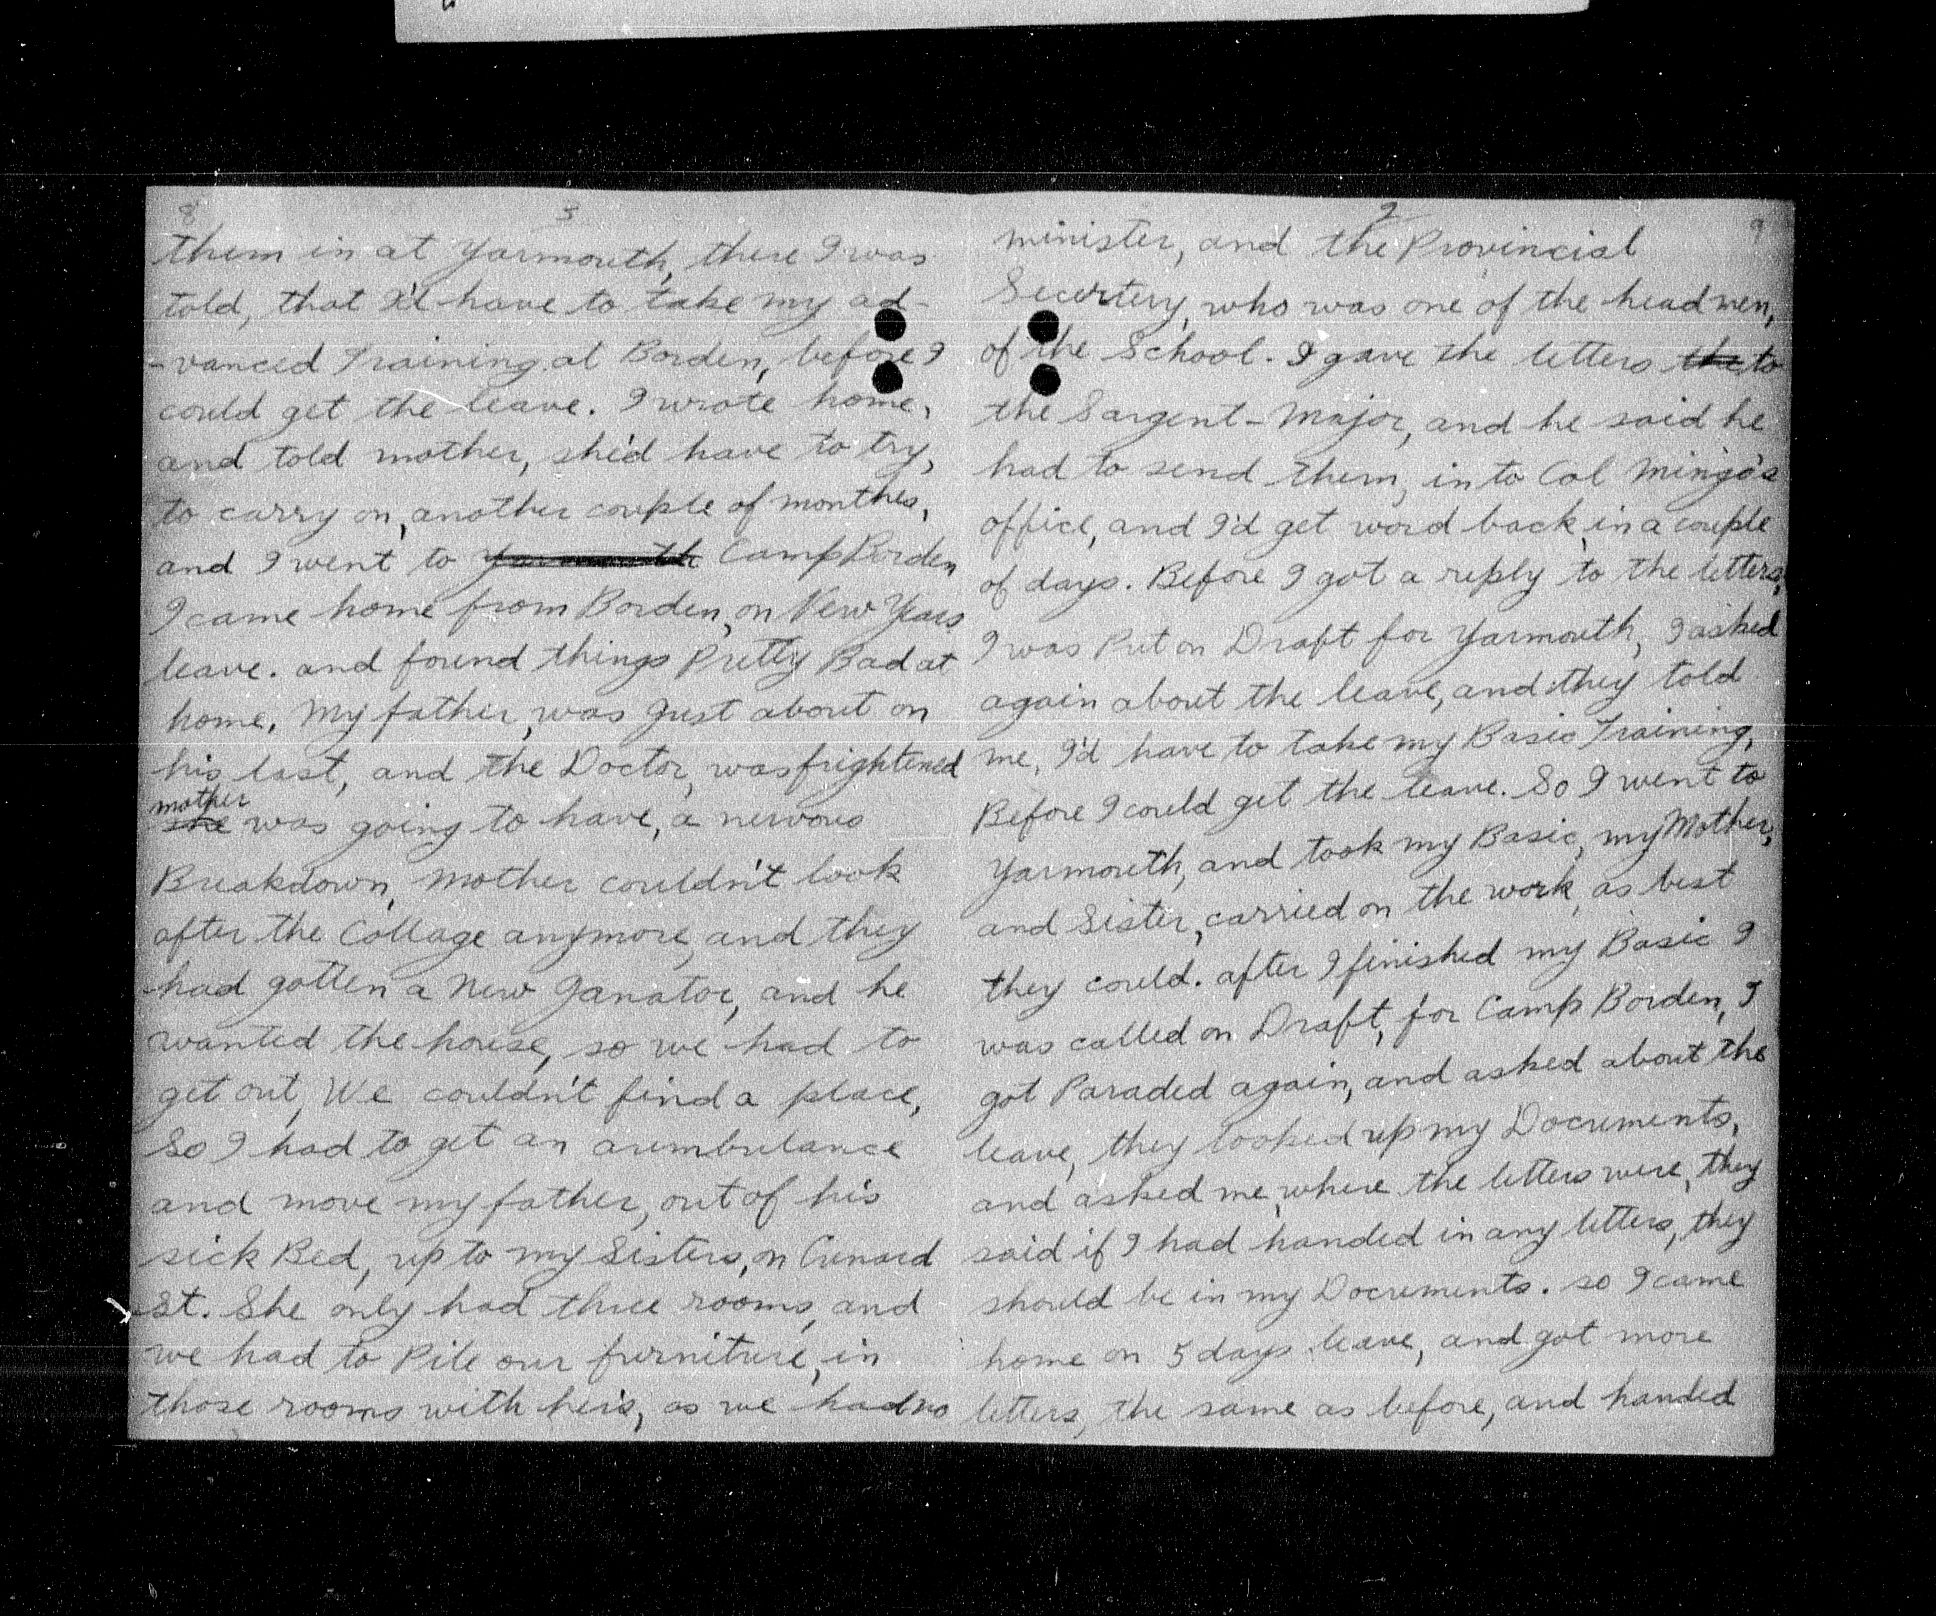 8
3
them in at Yarmouth, there I was
told, that I'd have to take my ad-
-vanced Training at Borden, before I
could get the leave. I wrote home,
and told mother, she'd have to try,
to carry on, another couple of monthes,
and I went to Yarmouth Camp Borden,
I came home from Borden, on New Years
leave. and found things Pretty Bad at
home. My father, was Just about on
his last, and the Doctor, was frightened
mother
she was going to have, a nervous
Breakdown, Mother couldn't look
after the Collage anymore, and they
had gotten a New Janator, and he
wanted the house, so we had to
get out, We couldn't find a place,
So I had to get an aumbulance
and move my father, out of his
sick Bed, up to my Sisters, on Cunard
St. She only had three rooms, and
we had to Pile our furniture, in
those rooms with her's, as we had no
2
9
minister, and the Provincial
Secertery, who was one of the head men,
of the School. I gave the letters the to
the Sargent-Major, and he said he
had to send them, in to Col Mingo's
office, and I'd get word back, in a couple
of days. Before I got a reply to the letters,
I was Put on Draft for Yarmouth, I asked
again about the leave, and they told
me, I'd have to take my Basic Training,
Before I could get the leave. So I went to
Yarmouth, and took my Basic, my Mother,
and Sister, carried on the work, as best
they could. after I finished my Basic I
was called on Draft, for Camp Borden, I
got Paraded again, and asked about the
leave, they looked up my Documents,
and asked me, where the letters were, they
said if I had handed in any letters, they
should be in my Documents. so I came
home on 5 days leave, and got more
letters, the same as before, and handed